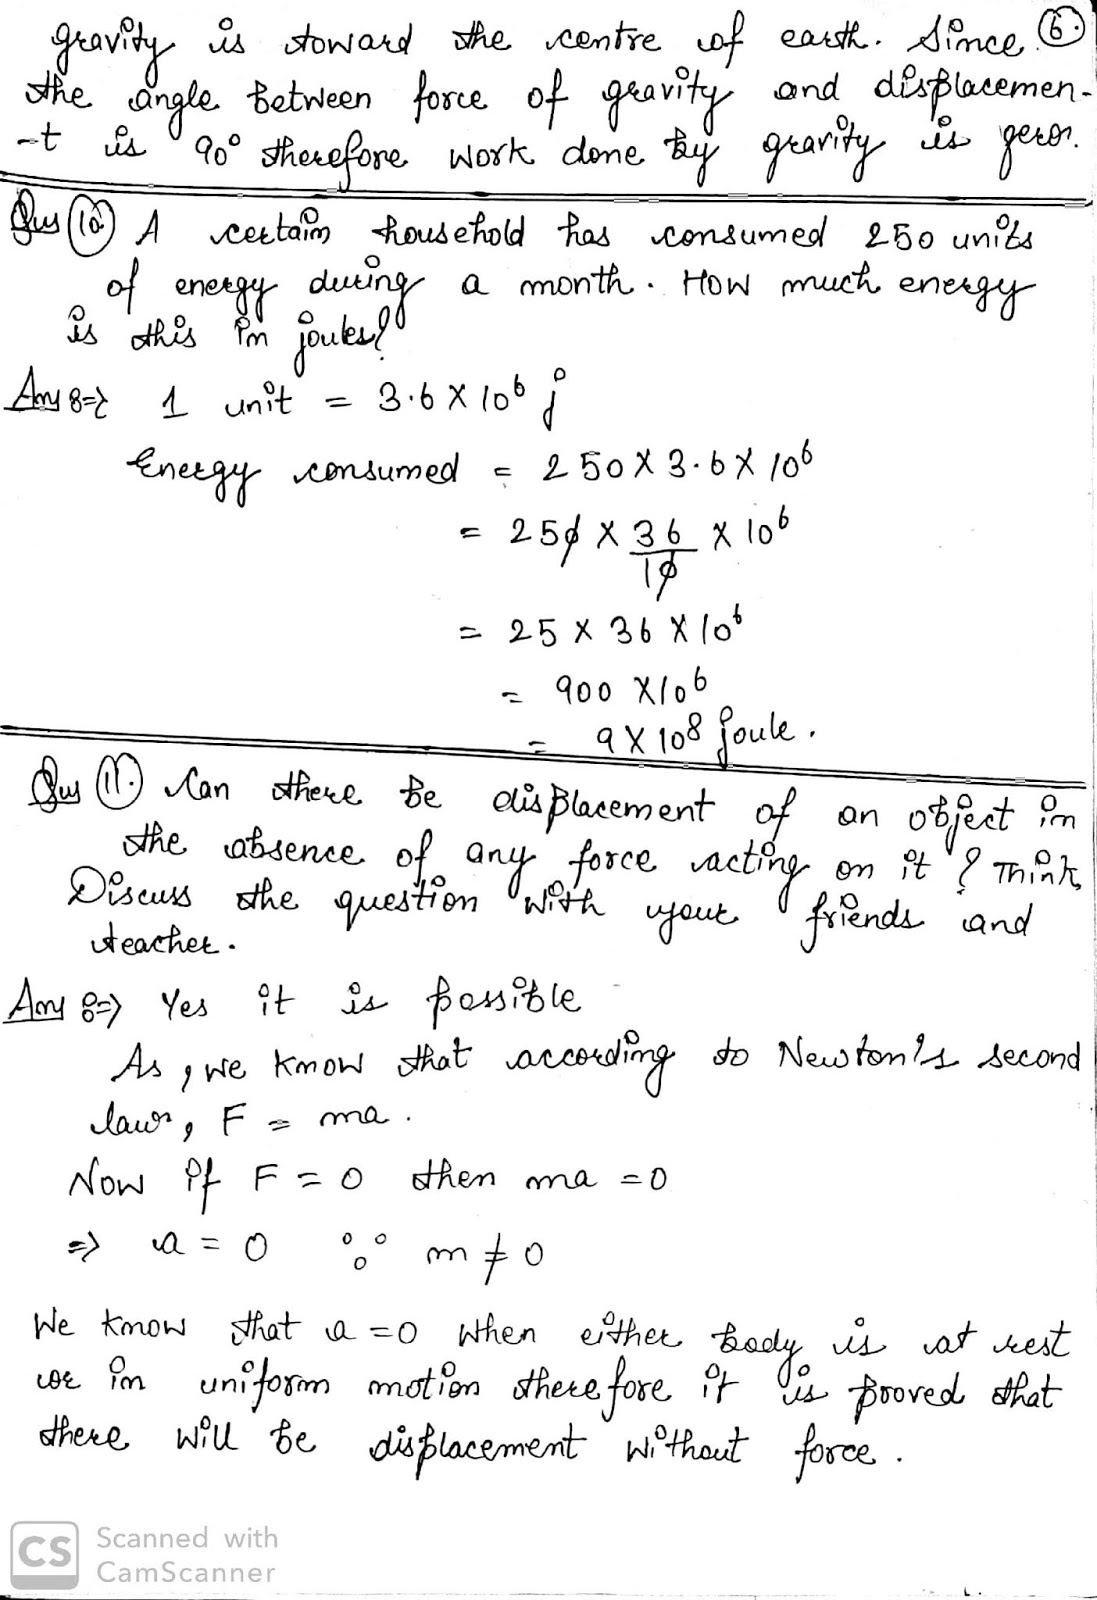 gravity is toward the centre of earth. Since 6.
the angle between force of gravity and displacemen-
-t is 90° therefore work done by gravity is zero.
Qus 10 A certain household has consumed 250 units
of energy during a month. How much energy
is this in joules?
Ans :=> 1 unit = 3.6 X 10⁶ j
Energy consumed = 250 X 3.6 X 10⁶
= 250 X 36/10 X 10⁶
= 25 X 36 X 10⁶
= 900 X 10⁶
= 9 X 10⁸ joule.
Qus 11. Can there be displacement of an object in
the absence of any force acting on it? Think,
Discuss the question with your friends and
teacher.
Ans :=> Yes it is possible
As, we know that according to Newton's second
law, F = ma.
Now if F = 0 then ma = 0
=> a = 0 ∵ m ≠ 0
We know that a = 0 when either body is at rest
or in uniform motion therefore it is prooved that
there will be displacement without force.
CS Scanned with
CamScanner